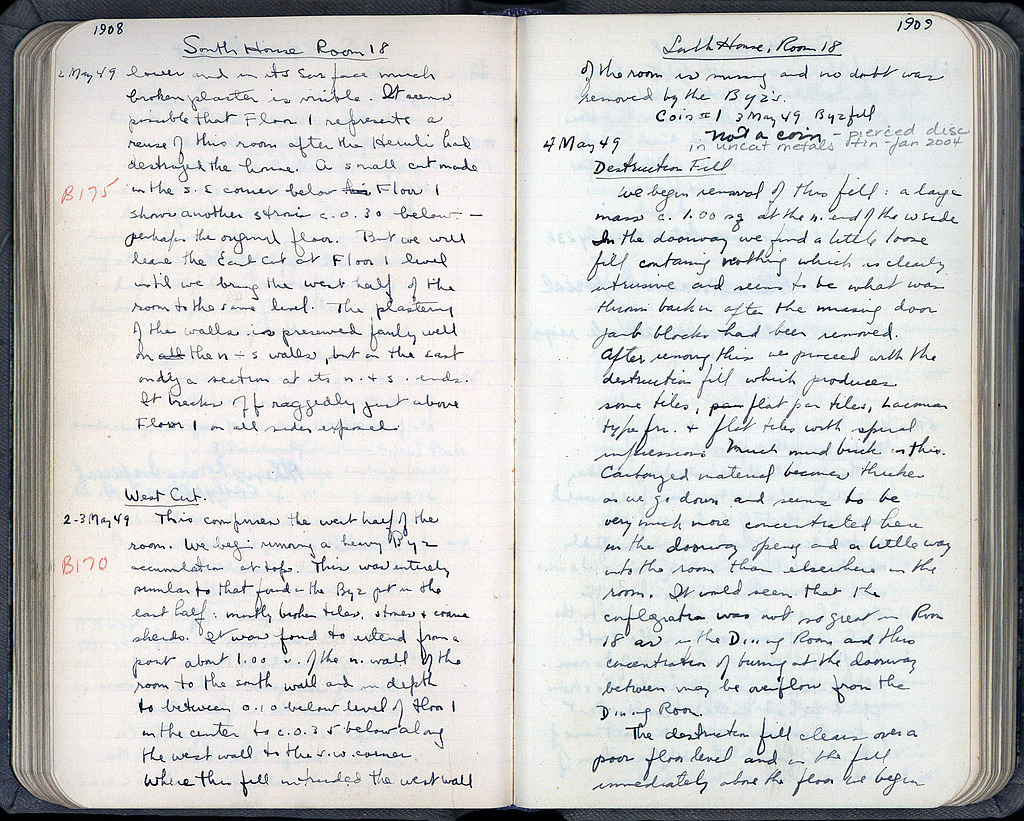 1908
South House Room 18
2 May 49 lower and in its surface much
broken plaster is visible. It seems
possible that Floor 1 represents a
reuse of this room after the Heruli had
destroyed the house. A small cut made
B175 in the s.e corner below this Floor 1
shows another strosis c. 0.30 below —
perhaps the original floor. But we will
leave the East Cut at Floor 1 level
until we bring the west half of the
room to the same level. The plastering
of the walls is preserved fairly well
on all the n + s walls, but on the east
only a section at its n. + s. ends.
It breaks off raggedly just above
Floor 1 on all sides exposed.
West Cut.
2-3 May 49 This comprises the west half of the
room. We begin removing a heavy Byz
B170 accumulation at top. This was entirely
similar to that found in the Byz pit in the
east half: mostly broken tiles, stones & coarse
sherds. It was found to extend from a
point about 1.00 s. of the n. wall of the
room to the south wall and in depth
to between 0.10 below level of Floor 1
in the center to c. 0.35 below along
the west wall to the s.w. corner.
Where this fill intruded the west wall
1909
South House, Room 18
of the room is missing and no doubt was
removed by the Byz's.
Coin #1 3 May 49 Byz fill
not a coin - pierced disc
in uncat metals tin - Jan 2004
4 May 49
Destruction Fill
We begin removal of this fill: a large
mass c. 1.00 sq at the n. end of the w side
In the doorway we find a little loose
fill containing nothing which is clearly
intrusive and seems to be what was
thrown back in after the missing door
jamb blocks had been removed.
After removing this we proceed with the
destruction fill which produces
some tiles, pan flat pan tiles, Laconian
type frs. + flat tiles with spiral
impressions. Much mud brick in this.
Carbonized material becomes thicker
as we go down and seems to be
very much more concentrated here
in the doorway opening and a little way
into the room than elsewhere in the
room. It would seem that the
conflagration was not so great in Room
18 as in the Dining Room and this
concentration of burning at the doorway
between may be overflow from the
Dining Room.
The destruction fill clears over a
poor floor level and in the fill
immediately above the floor we begin